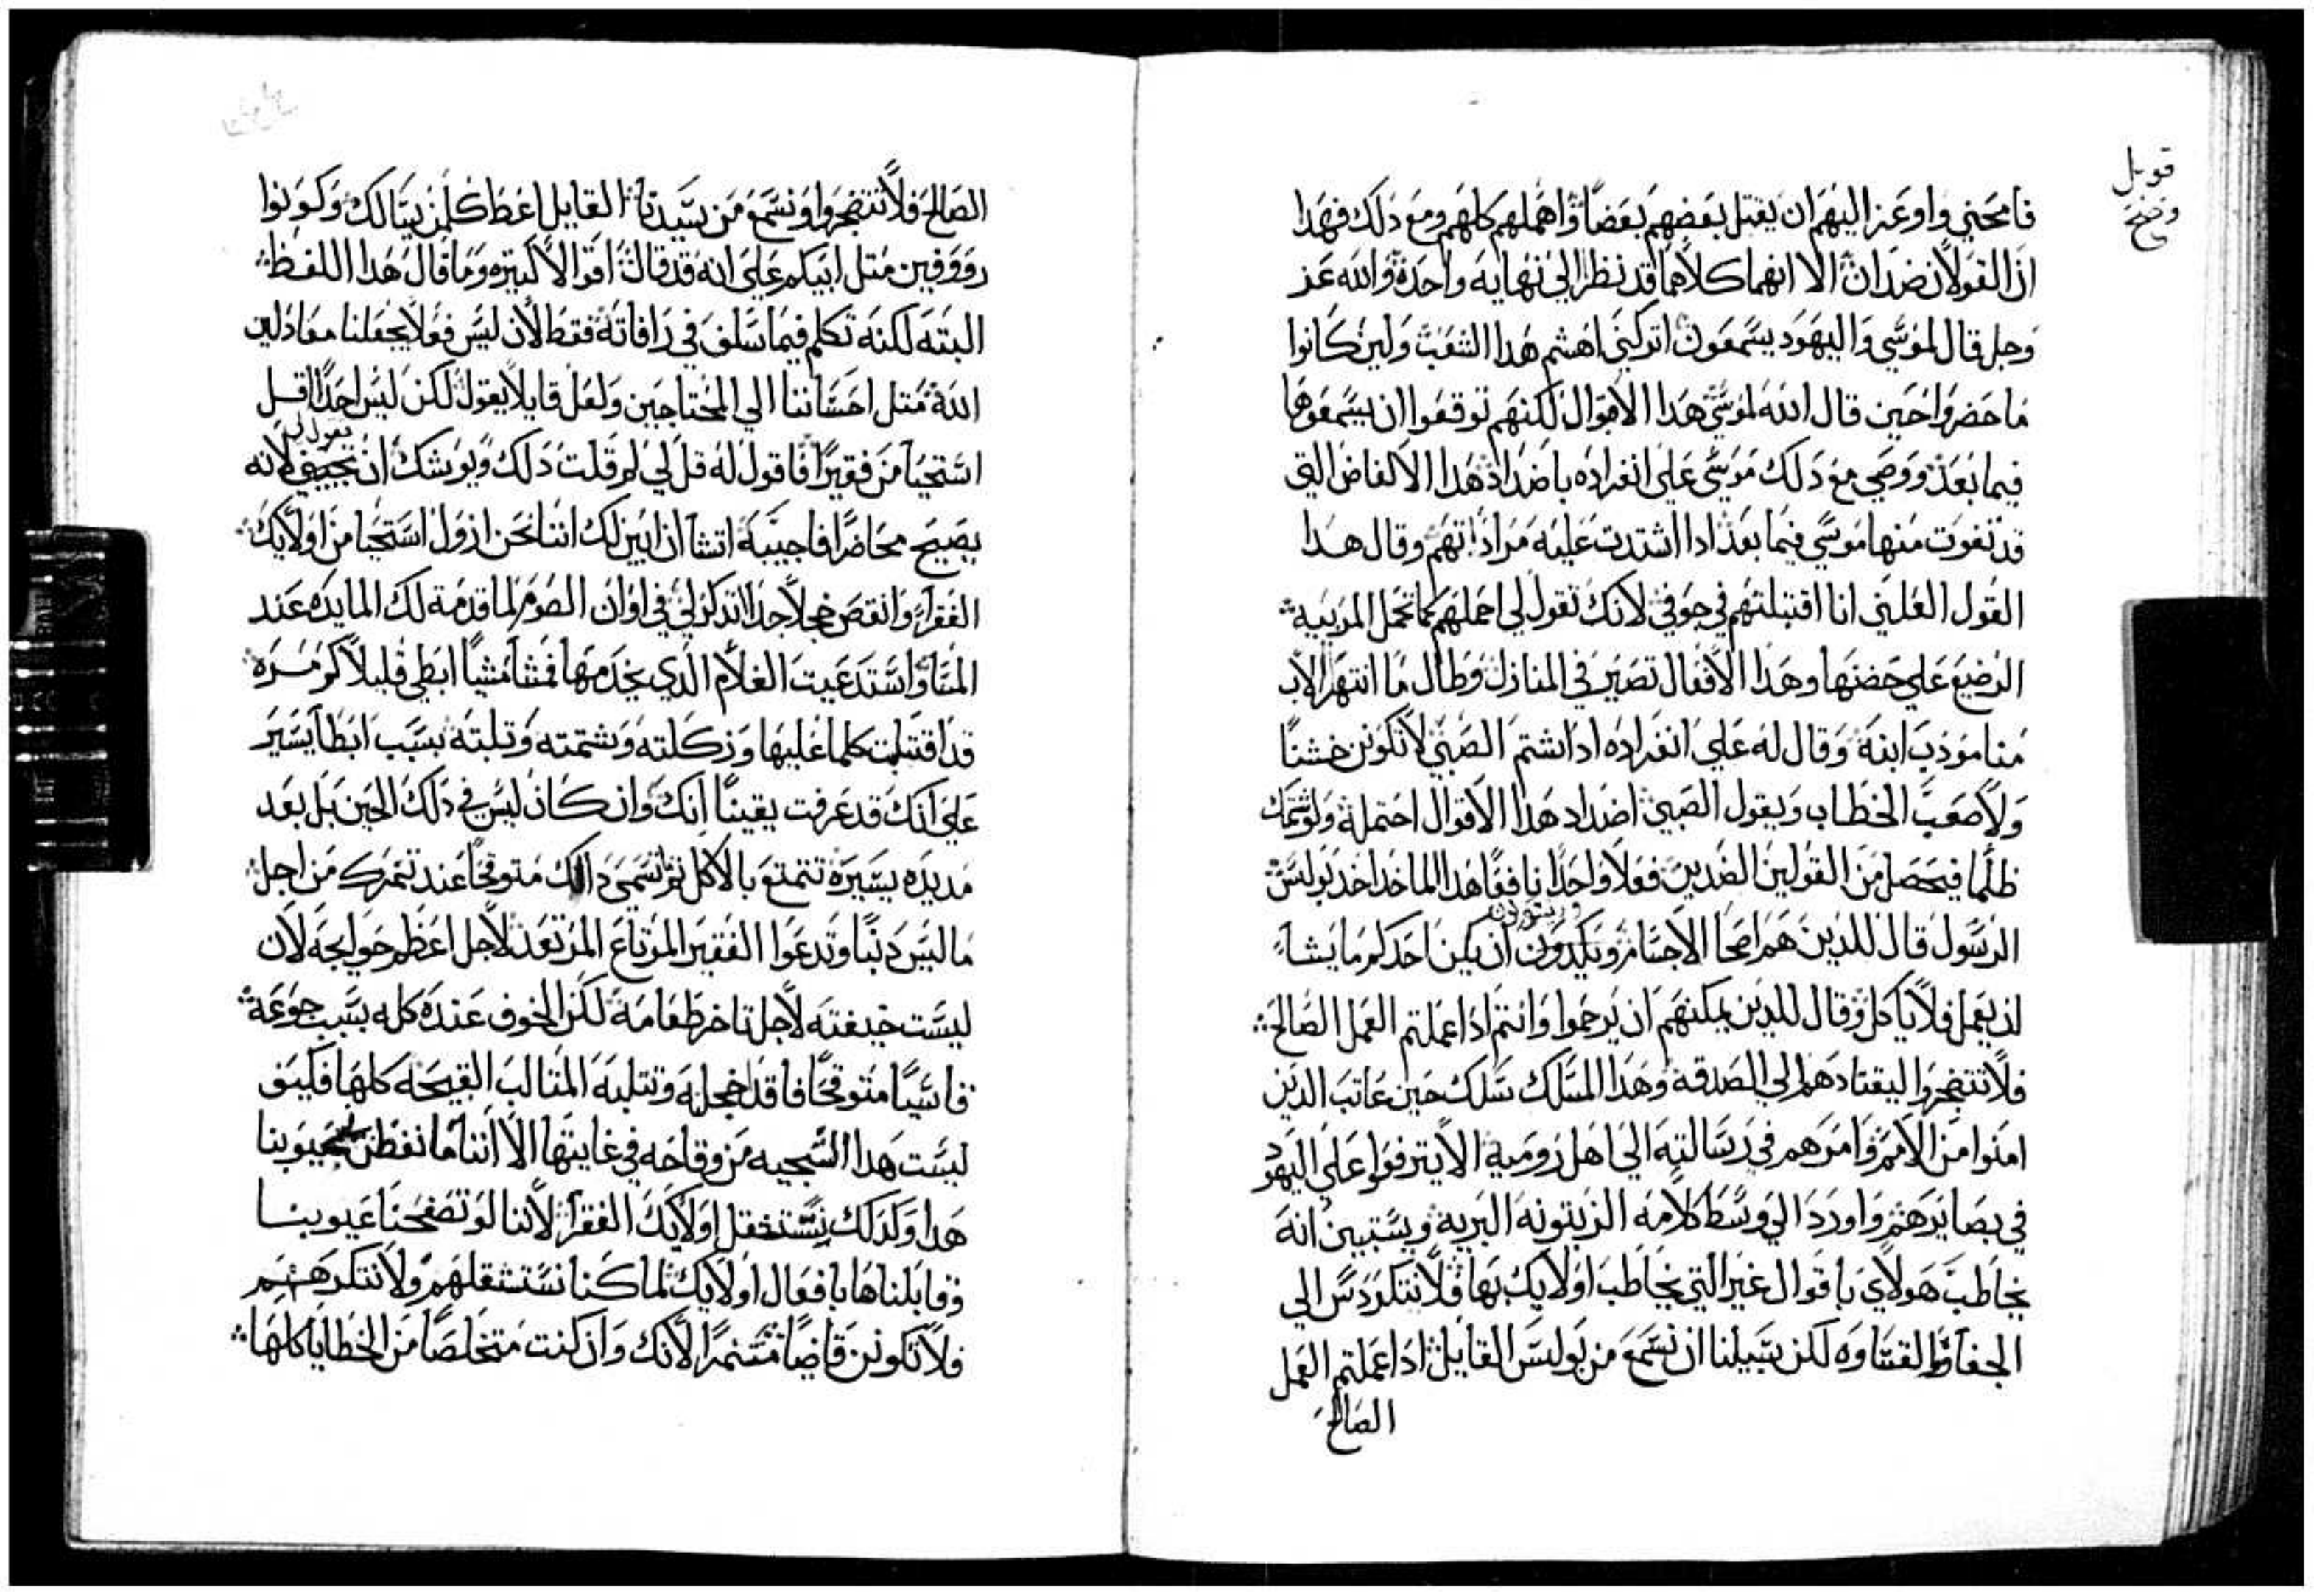 قوبل
وصح
فامحني واوعز اليهم ان يقتل بعضهم بعضا واهملهم كلهم ومع دلك فهدا
ان القولان ضدان الا انهما كلاهما قد نظرا الي نهاية واحدة والله عز
وجل قال لموسي واليهود يسمعون اتركني اهشم هدا الشعب ولين كانوا
ما حضروا حين قال الله لموسي هدا الاقوال لكنهم توقفوا ان يسمعوها
فيما بعد ووصي مع دلك موسي علي انفراده باضداد هدا الالفاض التي
قد تفوت منها موسي فيما بعد ادا اشتدت عليه مرادداتهم وقال هدا
القول العلني انا اقتبلتهم في جوفي لانك تقول لي احملهم كما تحمل المربيه
الرضيع علي حضنها وهدا الافعال تصير في المنازل وطال ما انتهر الاب
منا مودب ابنه وقال له علي انفراده ادا شتم الصبي لا تكونن خشنا
ولا صعب الخطاب ويقول الصبي اضداد هدا الاقوال احتمله ولو شتمك
ظلما فيحصل من القولين الضدين فعلا واحدا نافعا هدا الماخد اخد بولس
الرسول قال للدين هم اصحا الاجسام ويكدون ان يكن احدكم ما يشا
لن يعمل فلا ياكل وقال للدين يمكنهم ان يرحموا وانتم ادا عملتم العمل الصالح
فلا تتضجروا ليقتادهم الي الصدقة وهدا المسلك سلك حين عاتب الدين
امنوا من الامم وامرهم في رسالته الي اهل رومية الا يترفوا علي اليهود
في بصايرهم واورد الي وسط كلامه الزيتونه البرية ويستبين انه
يخاطب هولاي باقوال غير التي يخاطب اولايك بها فلا نتكردس الي
الجفا والقساوه لكن سبيلنا ان نسمع من بولس القايل ادا عملتم العمل
الصالح
الصالح فلا تتضجروا ونسمع من سيدنا القايل اعط كلمن يسالك وكونوا
رووفين متل ابيكم علي انه قد قال اقوالا كتيره وما قال هدا اللفظ
البته لكنه تكلم فيما سلف في رافاته فقط لان ليس فعلا يجعلنا معادلين
الله متل احساننا الي المحتاجين ولعل قايلا يقول لكن ليس احدا اقل
استحيا من فقيرا فاقول له قل لي لم قلت دلك ويوشك ان يجيبني لانه
يصيح محاضرا فاجيبه اتشا ان ابين لك اننا نحن ازول استحيا من اولايك
الفقرا وانقص خجلا جدا اتدكر لي في اوان الصوم لما قدمة لك المايده عند
المسا واستدعيت الغلام الدي يخدمها فمشا مشيا ابطي قليلا كم مره
قد اقتبلت كلما عليها وركلته وشتمته وتلبته بسبب ابطا يسير
علي انك قد عرفت يقينا انك وان كان ليس في دلك الحين بل بعد
مديده يسيرة تتمتع بالاكل تم تسمي دالك متوقحا عند تنمرك من اجل
ما ليس دنبا وتدعوا الفقير المرتاع المرتعد لاجل اعظم حوايجه لان
ليست خيفته لاجل تاخر طعامه لكن الخوف عنده كله بسبب جوعه
قاسيا متوقحا فاقد اخجله وتتلبه المتالب القبيحه كلها فكيف
ليست هدا السجيه من وقاحه في غايتها الا اننا ما نفطن بعيوبنا
هدا ولدلك نستثقل اولايك الفقرا لاننا لو تصفحنا عيوبنا
وقابلناها بافعال اولايك لما كنا نستثقلهم ولا نتكرههم
فلا تكونن قاضيا متنمرا لانك وان كنت متخلصا من الخطايا كلها